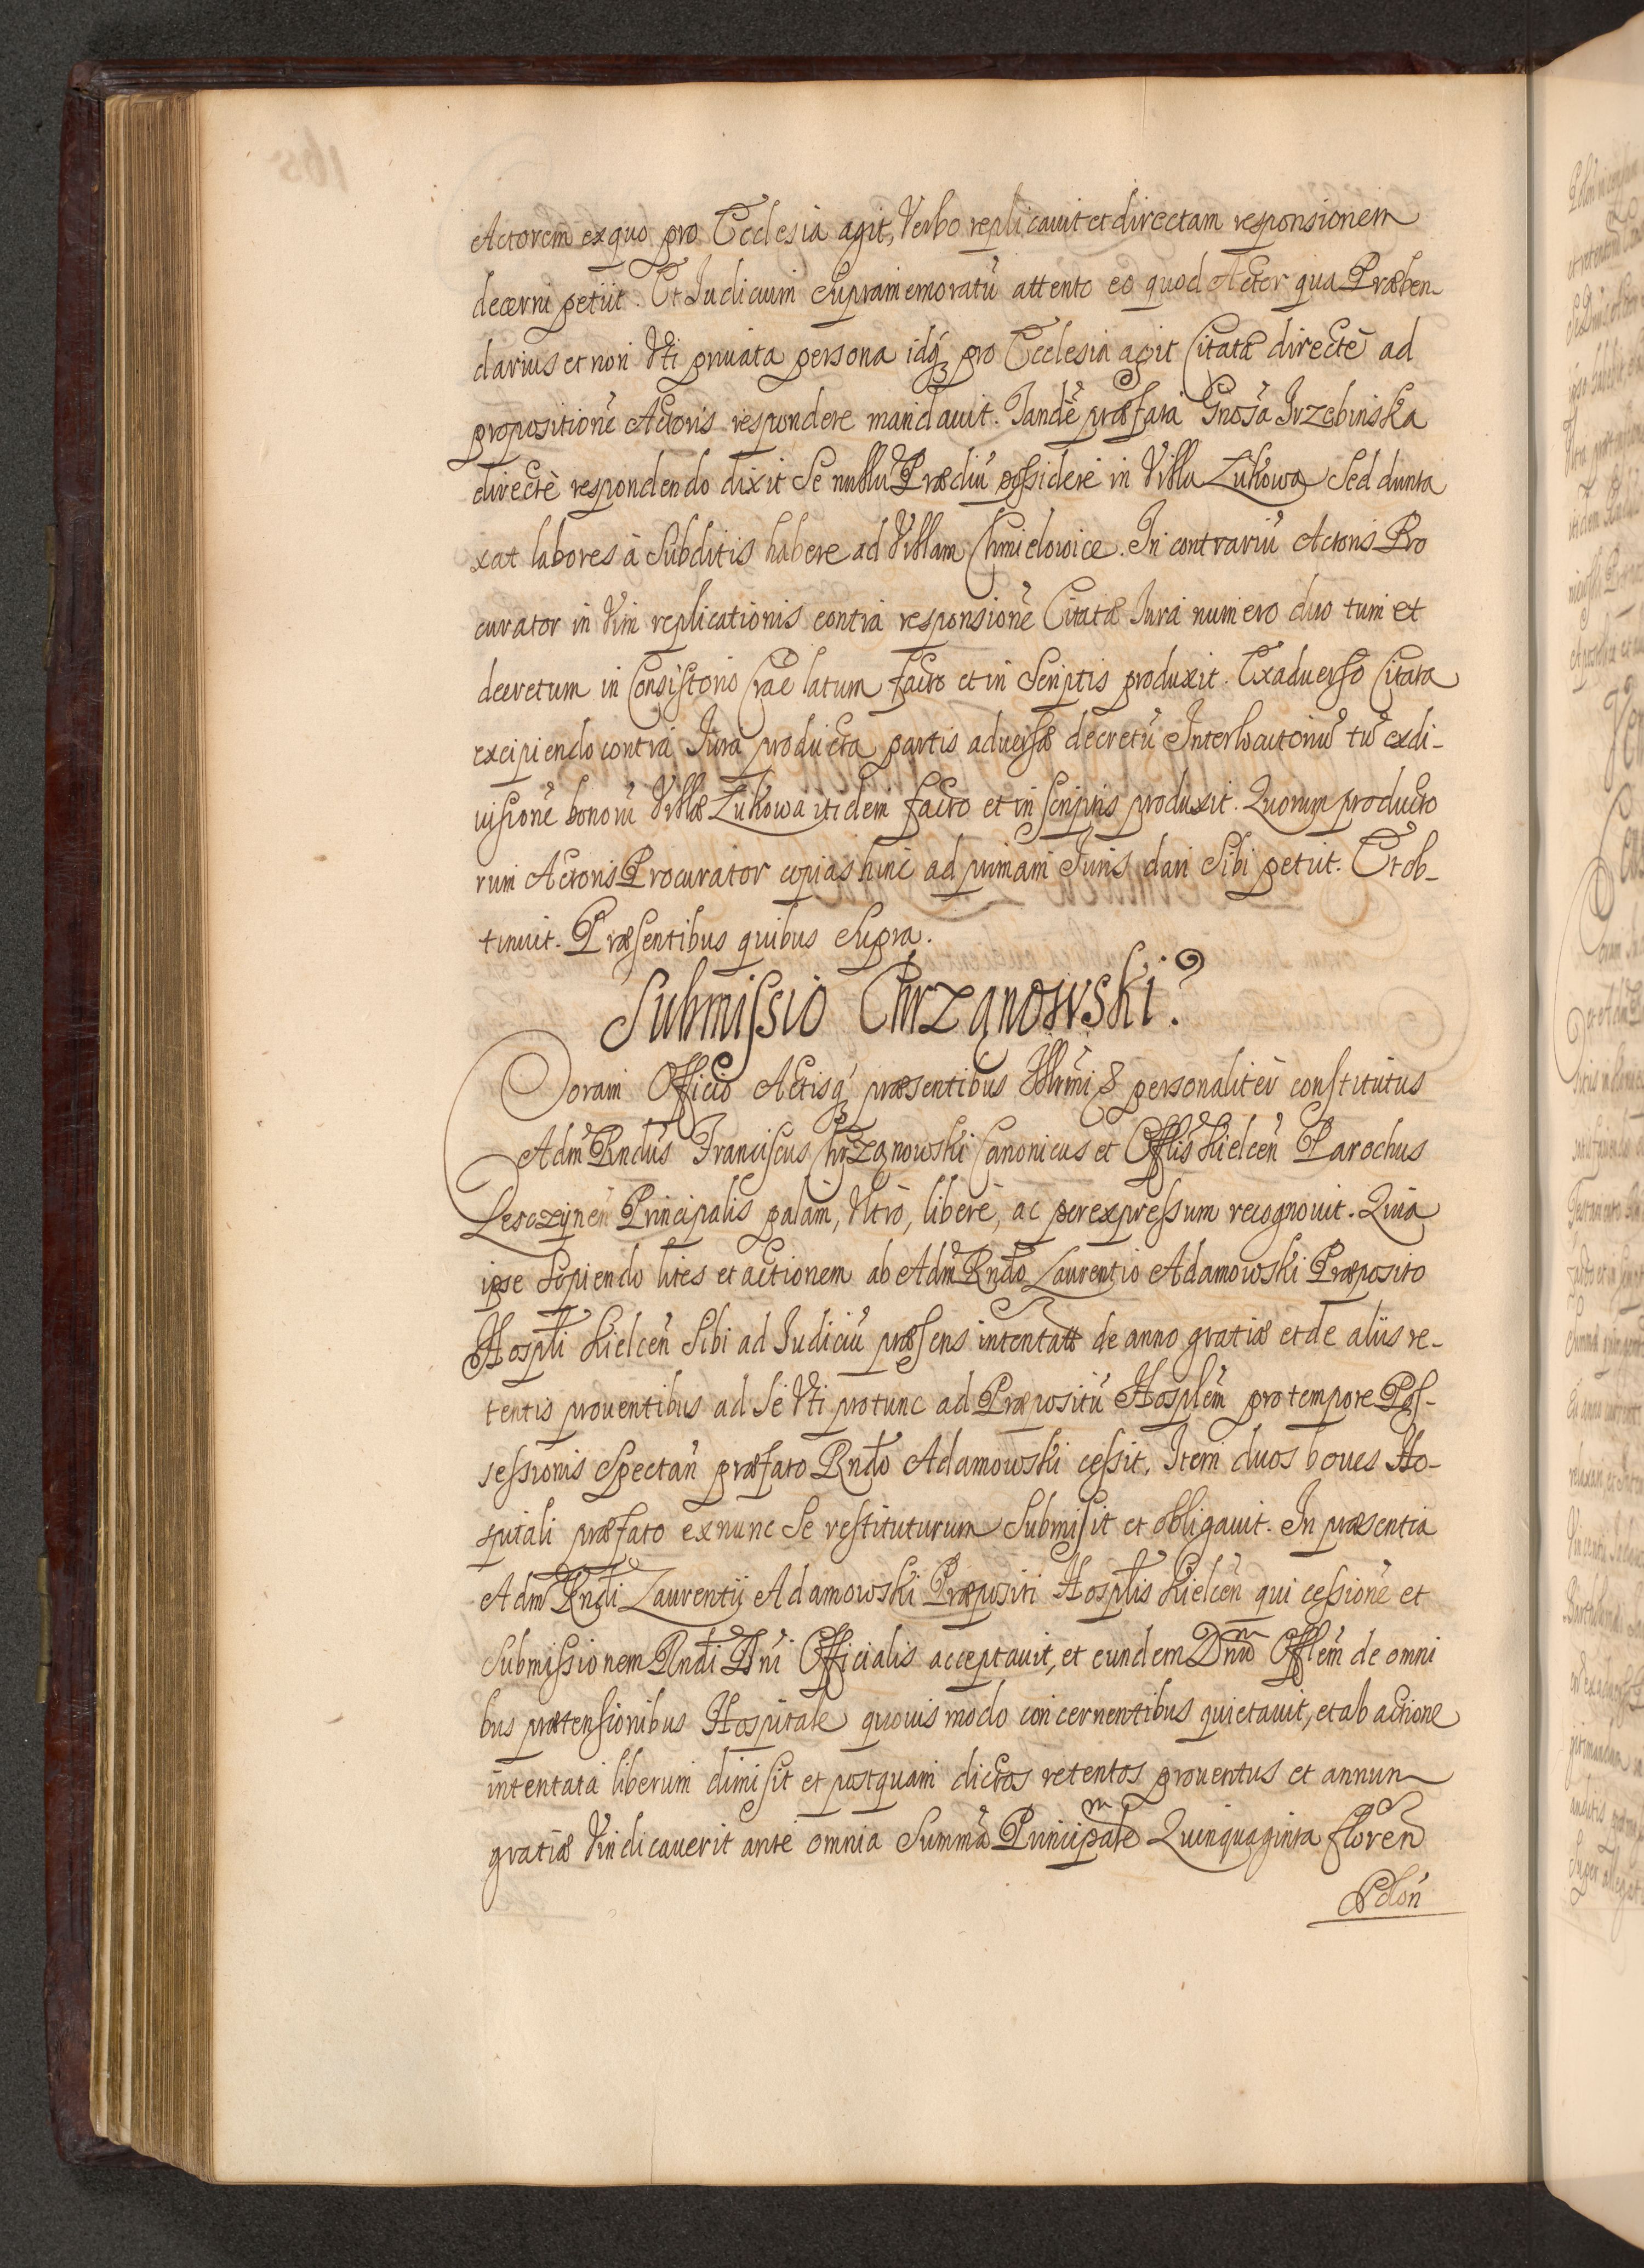 Actorem exquo pro Ecclesia agit, Verbo replicauit et directam responsionem
decerni petiit. Et Iudicium Supramemoratū attento eo quod Actor qua Præben-
darius et non Vti priuata persona idq́ pro Ecclesia agit Citatā directè ad
propositionē Actoris respondere mandauit. Tandē præfata Gnosa Trzebinska
directè respondendo dixit Se nullū Prædiū possidere in Villa Zukowa Sed dunta
xat labores à Subditis habere ad Villam Chmielowice. In contrariū Actoris Pro
curator in Vim replicationis contra responsionē Citatæ Iura numero duo tum et
decretum in Consistorio Crac̄ latum facto et in Scriptis produxit. Exaduerso Citata
excipiendo contra Iura producta partis aduersæ decretū Interlocutoriū tū exdi-
uisionē bonorū Villæ Zukowa itidem facto et in scriptis produxit. Quorum producto
rum Actoris Procurator copias hinc ad primam Iuris dari Sibi petiit. Et ob-
tinuit. Præsentibus quibus Supra.
Submissio Chrząnowski.
Coram Officio Actisq́ præsentibus Illrmi & personalitèr constitutus
Adm̄ Rndūs Franciscus Chrząnowski Canonicus et Offlis Kielcen̄ Parochus
Lesczÿnen̄ Principalis palam, Vltrò, liberè, ac perexpressum recognouit. Quia
ipse Sopiendo lites et actionem ab Adm̄ Rndo Laurentio Adamowski Præposito
Hospli Kielcen̄ Sibi ad Iudiciū præsens intentatā de anno gratiæ et de aliis re-
tentis prouentibus ad Se Vti protunc ad Præpositū Hosplem̄ pro tempore Pos-
sessionis Spectan̄ præfato Rndo Adamowski cessit. Item duos boues Ho-
spitali præfato exnunc Se restituturum Submisit et obligauit. In præsentia
Adm̄ Rndi Laurentij Adamowski Præpositi Hosplis Kielcen̄ qui cessionē et
Submissionem Rndi Dn̄i Officialis acceptauit, et eundem Dnūm Offlem̄ de omni
bus prætensionibus Hospitale quouis modo concernentibus quietauit, et ab actione
intentata liberum dimisit et postquam dictos retentos prouentus et annum
gratiæ Vindicauerit ante omnia Summā Principalem Quinquaginta floren̄
Polon̄